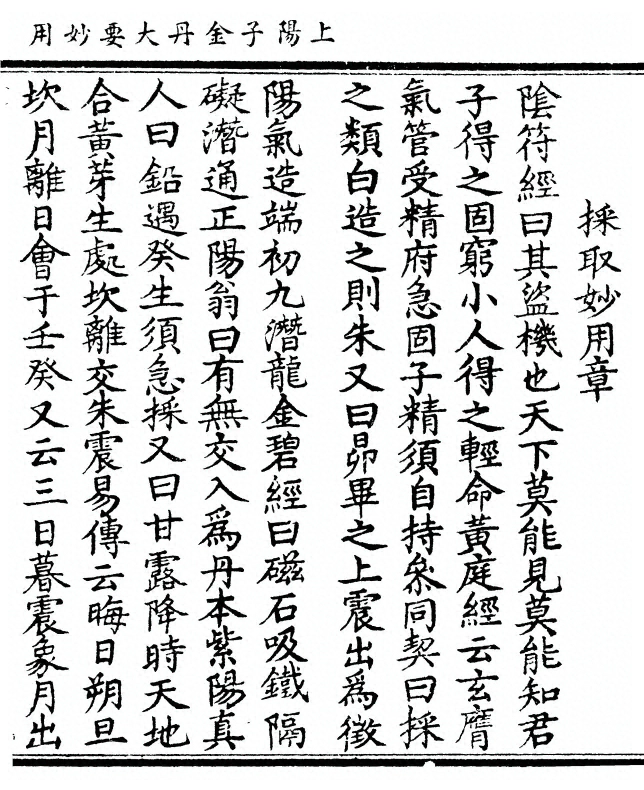 上陽子金丹大要妙用
採取妙用章
陰符經曰其盜機也天下莫能見莫能知君
子得之固窮小人得之輕命黃庭經云玄膺
氣管受精府急固子精須自持叅同契曰採
之類白造之則朱又曰昴畢之上震出爲徵
陽氣造端初九潛龍金碧經曰磁石吸鐵隔
礙潛通正陽翁曰有無交入爲丹本紫陽真
人曰鉛遇癸生須急採又曰甘露降時天地
合黃芽生處坎離交朱震易傳云晦日朔旦
坎月離日會于壬癸又云三日暮震象月出